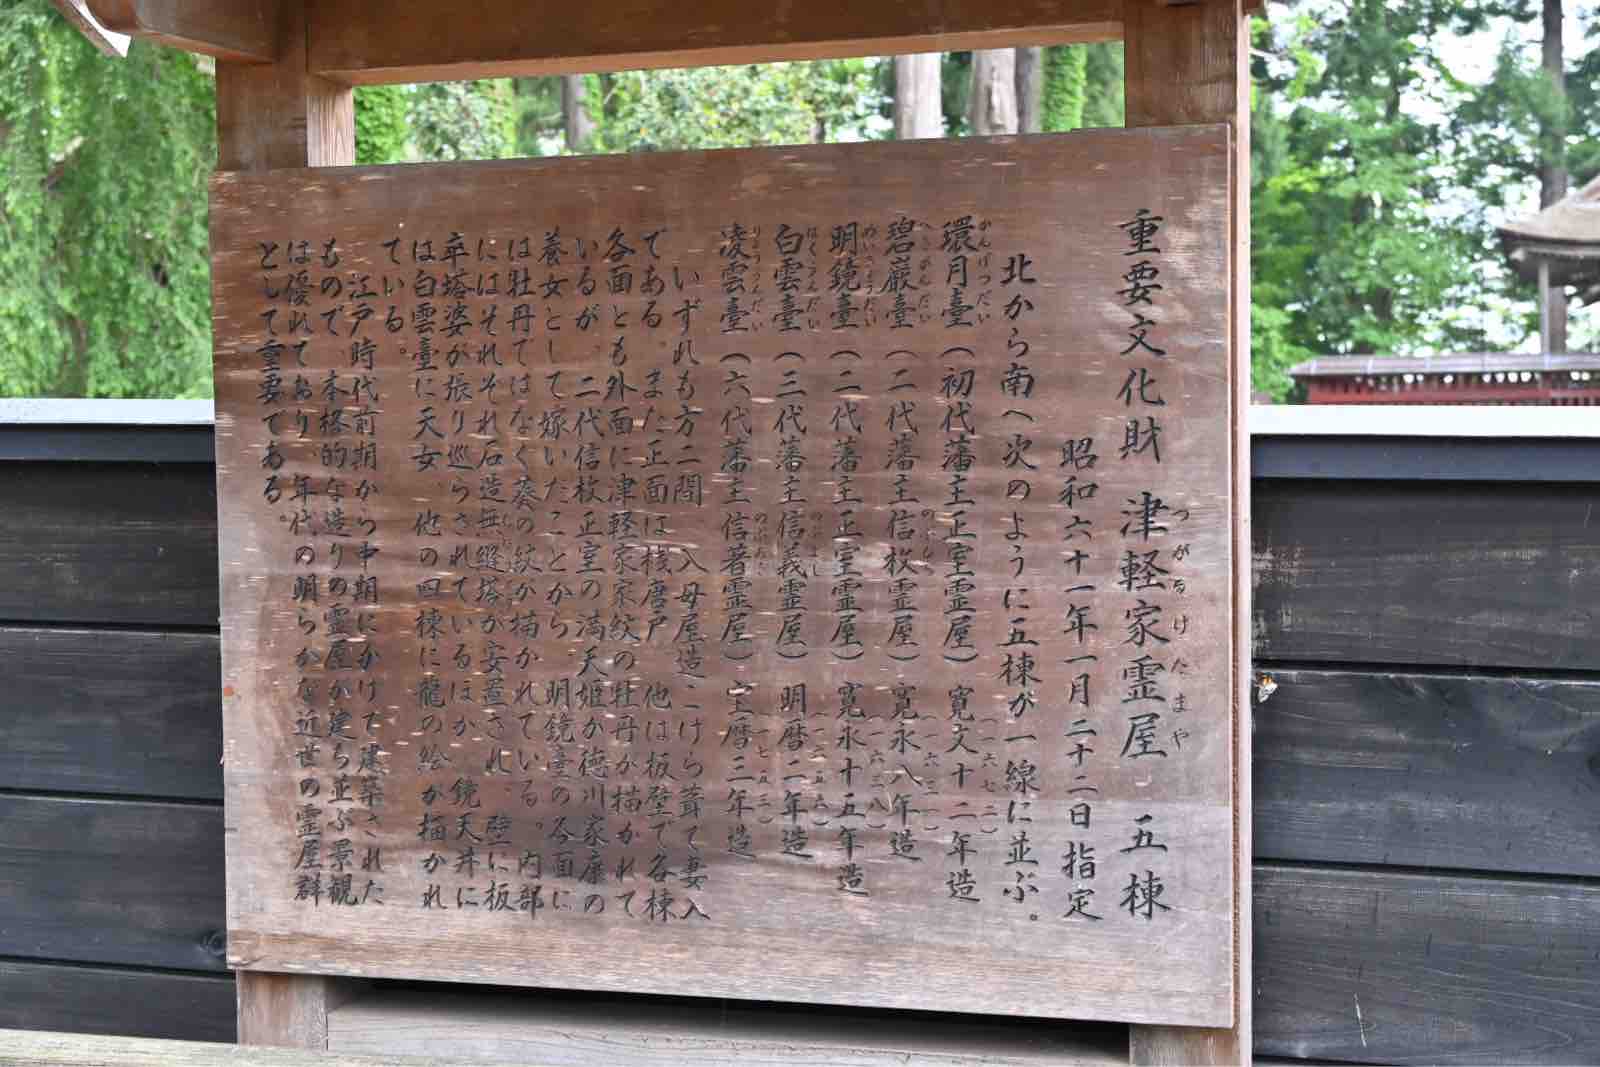 重要文化財　津軽家霊屋　五棟
つがるけたまや
昭和六十一年一月二十二日指定
北から南へ次のように五棟が一線に並ぶ。
環月臺（初代藩主正室霊屋）寛文十二年造
かんげつだい
（一六七二）
碧巖臺（二代藩主信枚霊屋）寛永八年造
へきがんだい
（一六三一）
明鏡臺（二代藩主正室霊屋）寛永十五年造
めいきょうだい
（一六三八）
白雲臺（三代藩主信義霊屋）明暦二年造
はくうんだい　のぶよし
（一六五六）
凌雲臺（六代藩主信著霊屋）宝暦三年造
りょううんだい
（一七五三）
いずれも方二間、入母屋造こけら葺で妻入
である。また正面は桟唐戸、他は板壁で各棟
各面とも外面に津軽家家紋の牡丹が描かれて
いるが、二代信枚正室の満天姫が徳川家康の
養女として嫁いだことから、明鏡臺の各面に
は牡丹ではなく葵の紋が描かれている。内部
にはそれぞれ石造無縫塔が安置され、壁に板
卒塔婆が張り巡らされているほか、鏡天井に
は白雲臺に天女、他の四棟に龍の絵が描かれ
ている。
江戸時代前期から中期にかけて建築された
もので、本格的な造りの霊屋が建ち並ぶ景観
は優れており、年代の明らかな近世の霊屋群
として重要である。